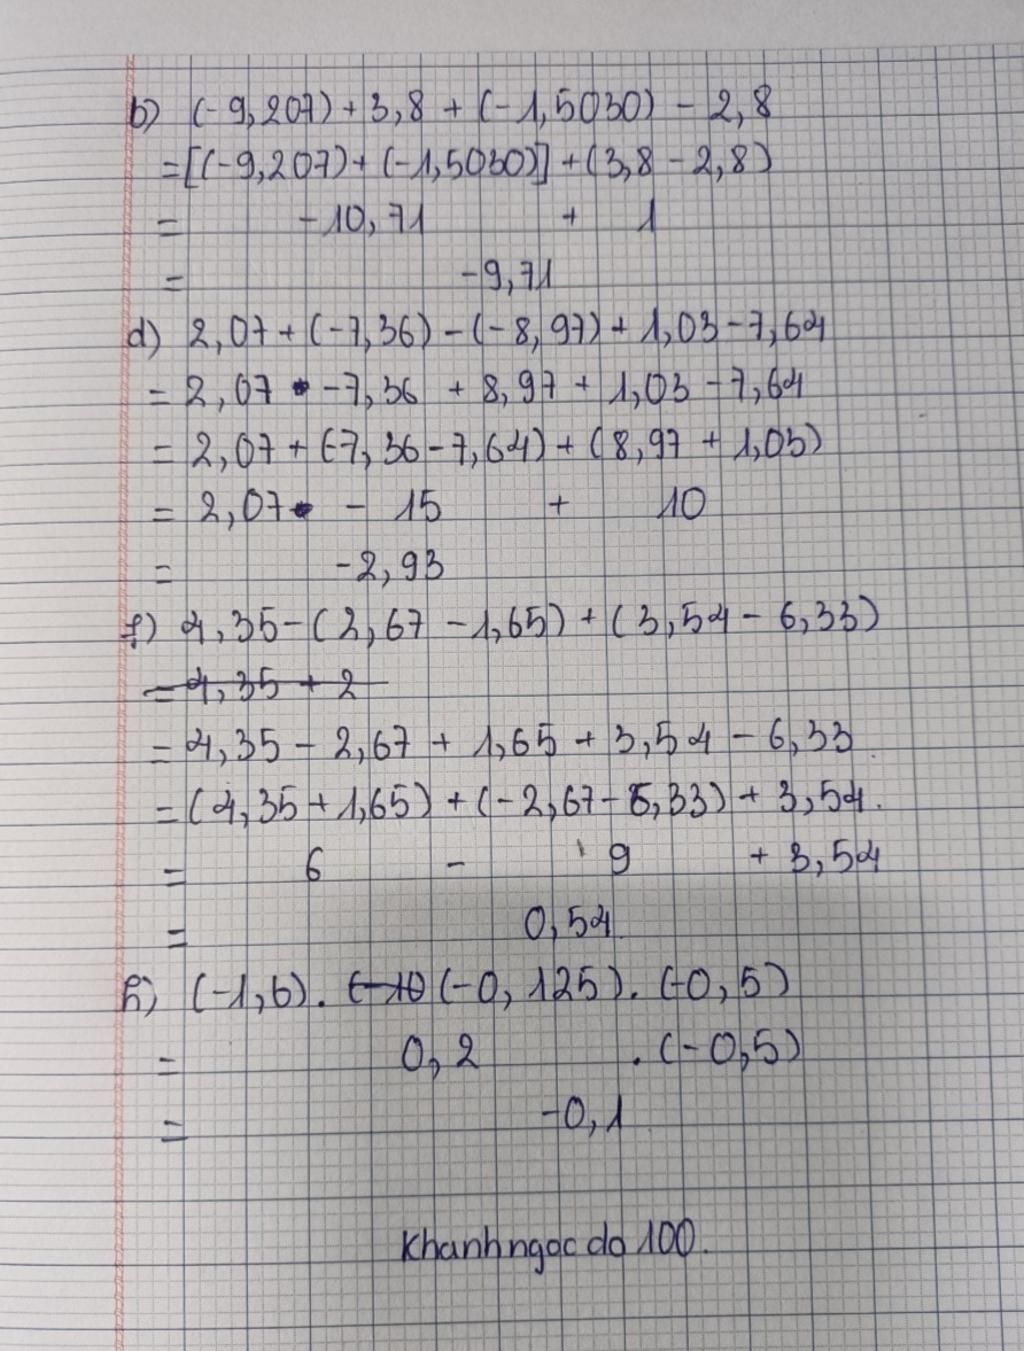 b) (-9,207) + 3,8 + (-1,5030) - 2,8
= [(-9,207) + (-1,5030)] + (3,8 - 2,8)
= -10,71 + 1
= -9,71
d) 2,07 + (-7,36) - (-8,97) + 1,03 - 7,64
= 2,07 - 7,36 + 8,97 + 1,03 - 7,64
= 2,07 + (-7,36 - 7,64) + (8,97 + 1,03)
= 2,07 - 15 + 10
= -2,93
f) 4,35 - (2,67 - 1,65) + (3,54 - 6,33)
= 4,35 + 2
= 4,35 - 2,67 + 1,65 + 3,54 - 6,33
= (4,35 + 1,65) + (-2,67 - 6,33) + 3,54.
= 6 - 9 + 3,54
= 0,54
h) (-1,6) . (-10 (-0,125). (-0,5)
= 0,2 . (-0,5)
= -0,1
Khanhngoc do 100.